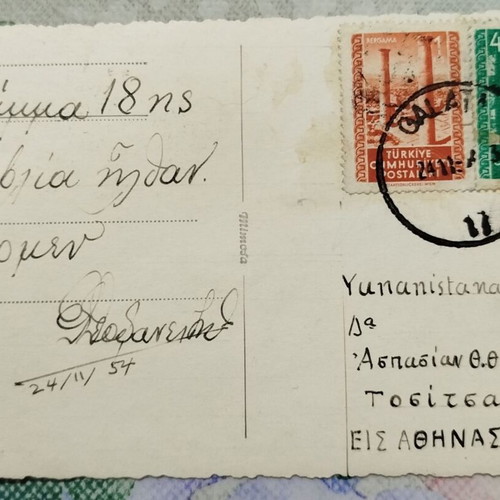 άμμα 18ης
βλία ἦλθαν.
ομεν
24/11/54
Mimoda
BERGAMA 1
TÜRKİYE
CUMHURİYE
POSTAL
4
GALATA
24 11
11
Yunanistana
Δα
Ἀσπασίαν Θ. Θ
Τοσίτσα
ΕΙΣ ΑΘΗΝΑΣ